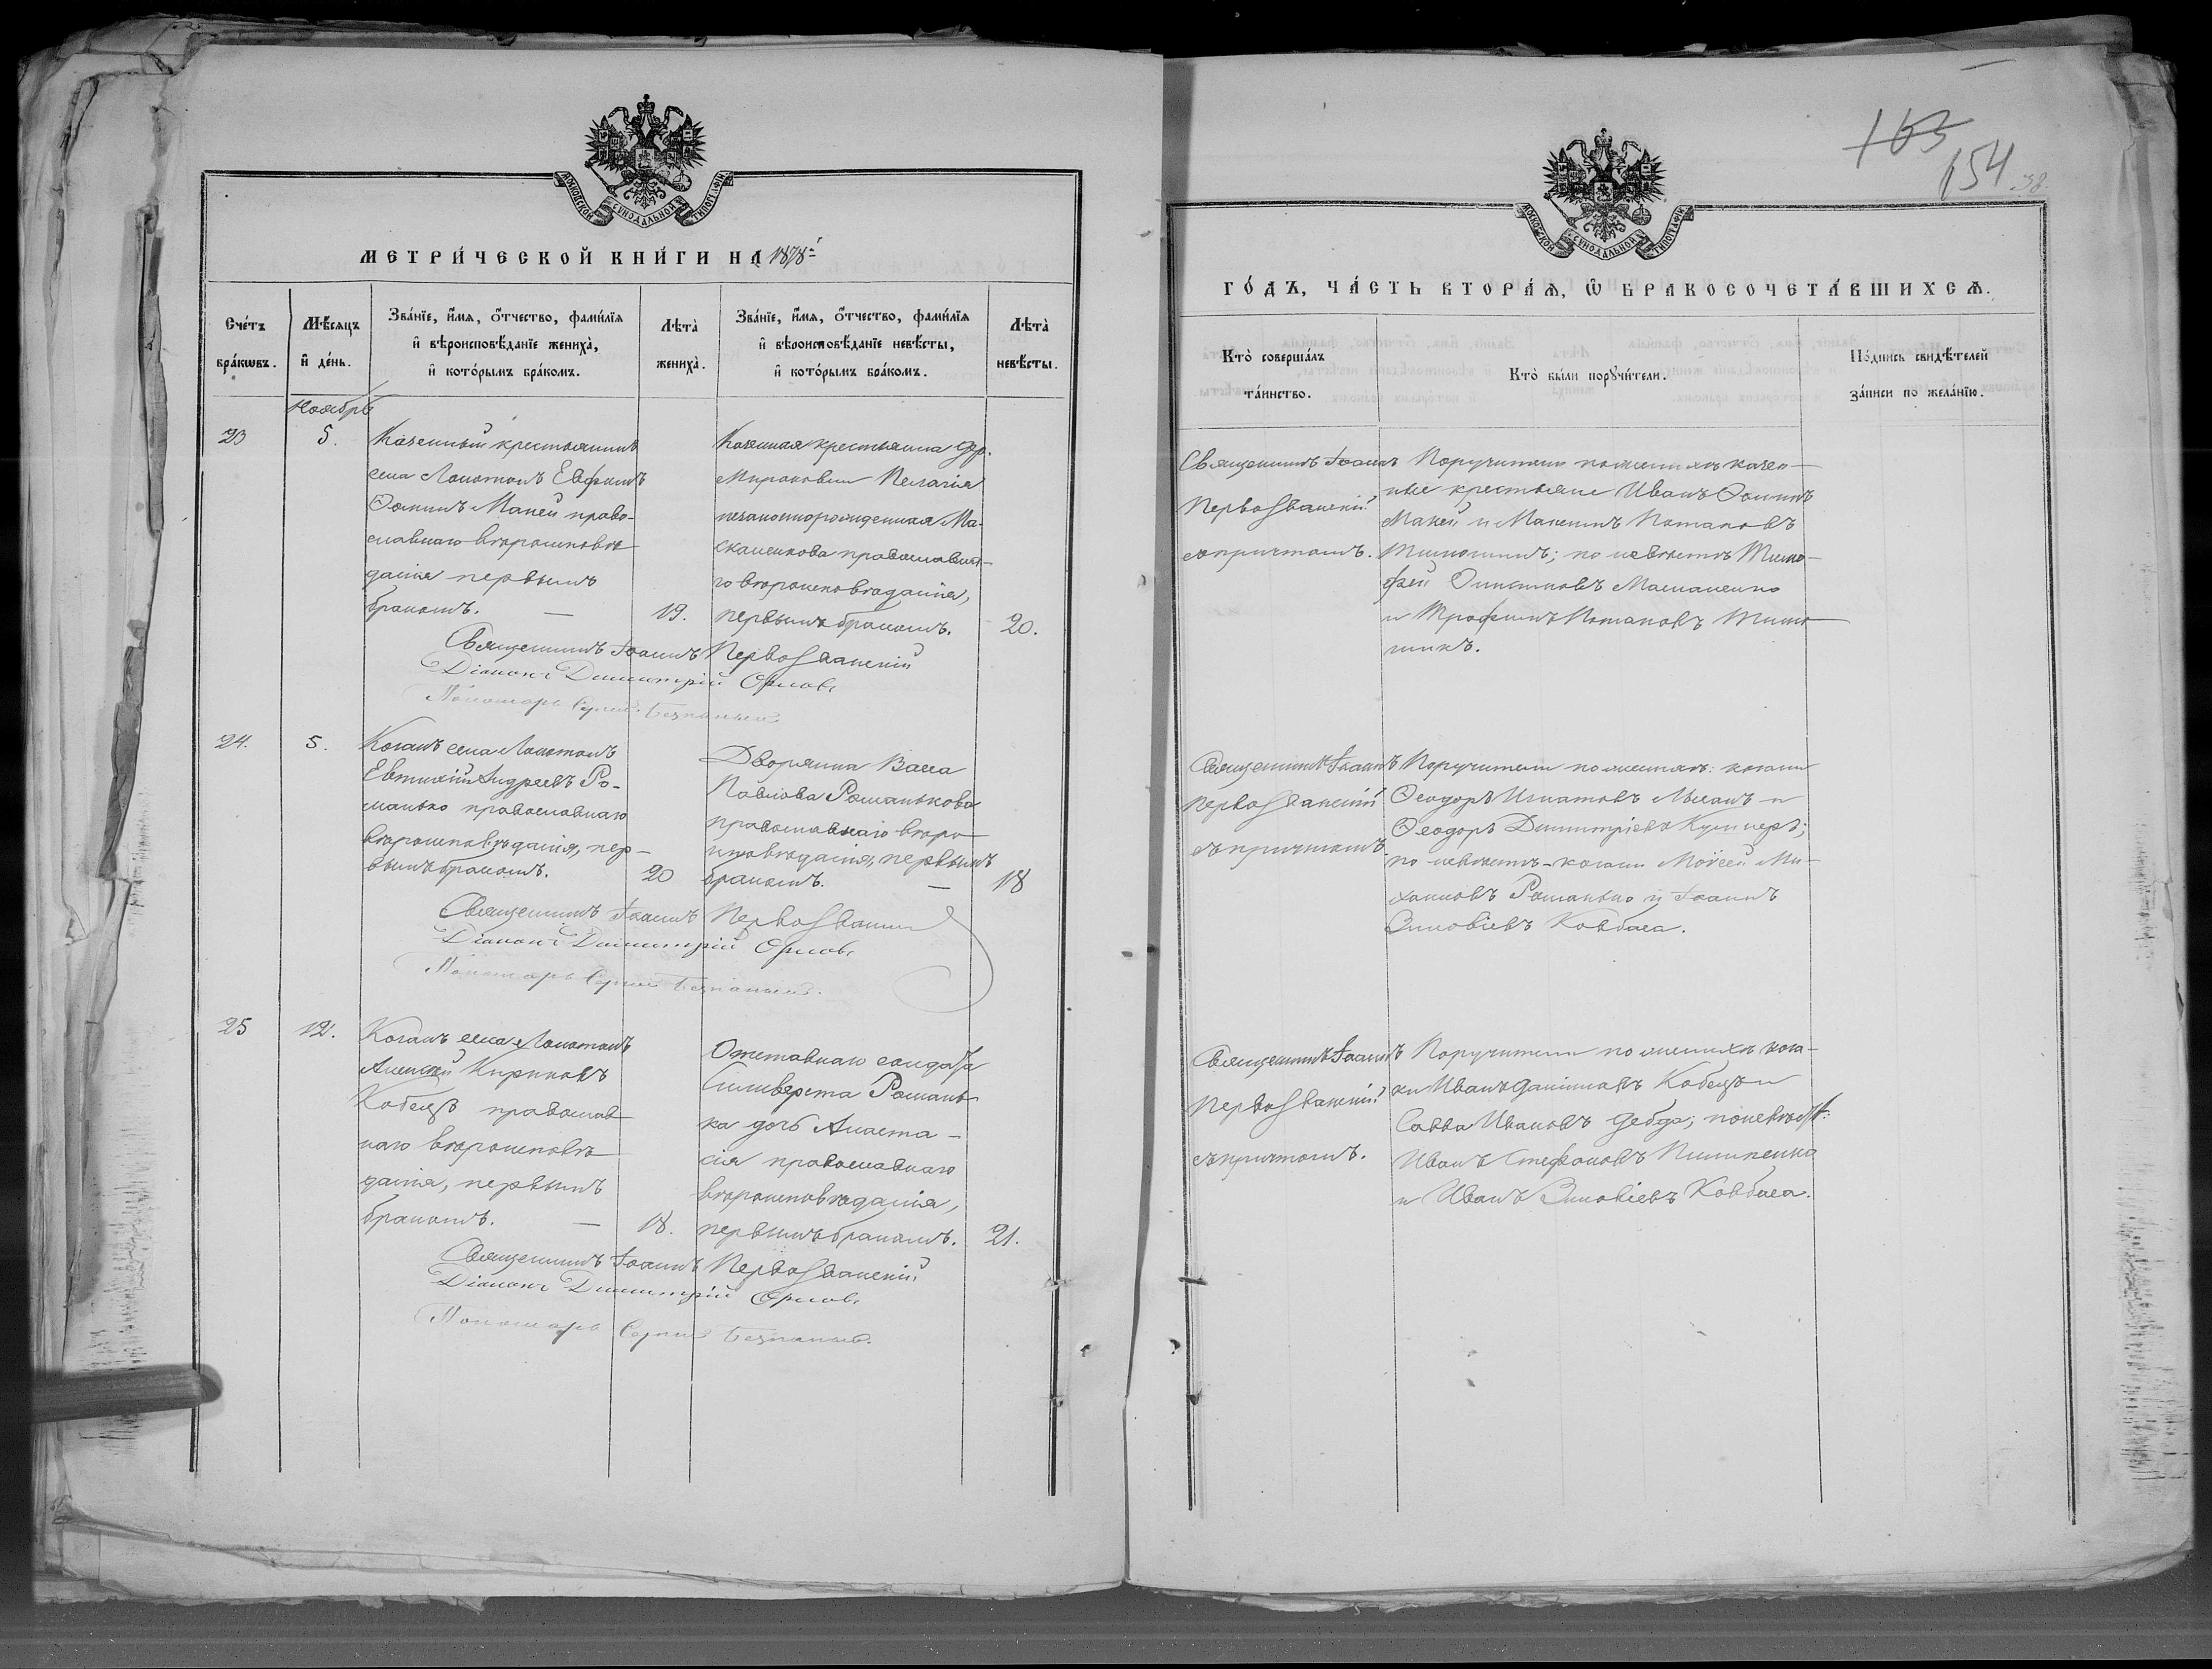 МОСКОВСКОЙ СѴНОДАЛЬНОЙ ТИПОГРАФІИ
МЕТРИ́ЧЕСКОЙ КНИ́ГИ НА 1878й
Сче́тъ бра́кѡвъ.
Мѣ́сяцъ и҆ де́нь.
Зва́нїе, и҆́мя, ѻ҆́тчество, фами́лїя
и҆ вѣроисповѣ́данїе жениха̀,
и҆ кото́рымъ бра́комъ.
Лѣ́та̀ жениха̀.
Зва́нїе, и҆́мя, ѻ҆́тчество, фами́лїя
и҆ вѣроисповѣ́данїе невѣ́сты,
и҆ кото́рымъ бра́комъ.
Лѣ́та̀ невѣ́сты.
Ноябрь
23
5.
Казенный крестьянинъ
села Локотокъ Евфимъ
Ѳоминъ Макей право-
славнаго вѣроисповѣ
данія первымъ
бракомъ. —
19.
Казенная крестьянка др.
Мироновки Пелагія
незаконнорожденная Ма-
скаленкова православна-
го вѣроисповѣданія,
первымъ бракомъ.
20.
Священникъ Іоаннъ Первозванскій
Діаконъ Димитрій Орловъ
Пономарь Сергій
24.
5.
Козакъ села Локотокъ
Евтихій Андреевъ Ро-
манько православнаго
вѣроисповѣданія, пер-
вымъ бракомъ.
20
Дворянка Васса
Павлова Романькова
православнаго вѣро
исповѣданія, первымъ
бракомъ. —
18
Священникъ Іоаннъ Первозванскій
Діаконъ Димитрій Орловъ
Пономарь Сергій
25
12.
Козакъ села Локотокъ
Алексѣй Кириковъ
Кобецъ православ
наго вѣроисповѣ
данія, первымъ
бракомъ. —
18.
Отставнаго солдата
Сильверста Романь
ка дочь Анаста-
сія православнаго
вѣроисповѣданія,
первымъ бракомъ.
21.
Священникъ Іоаннъ Первозванскій
Діаконъ Димитрій Орловъ
Пономарь Сергій
163
154
38.
МОСКОВСКОЙ СѴНОДАЛЬНОЙ ТИПОГРАФІИ
ГО́ДЪ, ЧА́СТЬ ВТОРА́Я, Ѿ БРАКОСОЧЕТА́ВШИХСЯ.
Кто̀ соверша́лъ та́инство.
Кто̀ бы́ли порꙋчи́тели.
По́дпись свидѣ́телей за́писи по жела́нїю.
Священникъ Іоаннъ
Первозванскій
съ причтомъ.
Поручители по женихѣ казен-
ные крестьяне Иванъ Ѳоминъ
Макей и Потаповъ
по невѣстѣ Тимо-
фей
и Трофимъ Потаповъ
Священникъ Іоаннъ
Первозванскій
съ причтомъ.
Поручители по женихѣ: козаки
Ѳеодоръ Игнатовъ и
Ѳеодоръ Димитріевъ Кушнеръ;
по невѣстѣ - козаки Моѵсей Ми-
хаиловъ Романько и Іоаннъ
Зиновіевъ Ковбаса.
Священникъ Іоаннъ
Первозванскій
съ причтомъ.
Поручители по женихѣ коза-
ки Иванъ Даніиловъ Кобецъ и
Савва Ивановъ Дебда; по невѣстѣ:
Иванъ Стефановъ Пилипенко
и Иванъ Зиновіевъ Ковбаса.